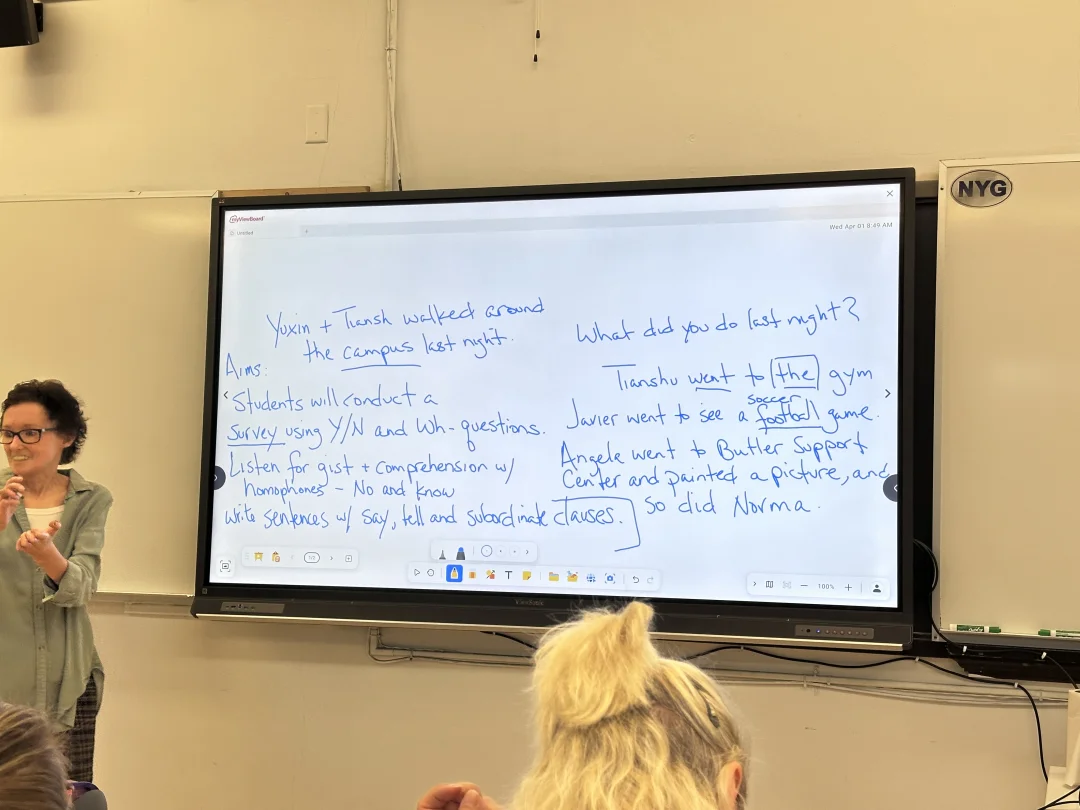 NYG
myViewBoard
Untitled
Wed Apr 01 8:49 AM
Yuxin + Tiansh walked around
the campus last night.
Aims:
Students will conduct a
survey using Y/N and Wh-questions.
Listen for gist + comprehension w/
homophones - No and know
Write sentences w/ say, tell and subordinate clauses.
What did you do last night?
Tianshu went to the gym
soccer
Javier went to see a football game.
Angele went to Butler Support
Center and painted a picture, and
so did Norma.
1/2
100%
ViewSonic